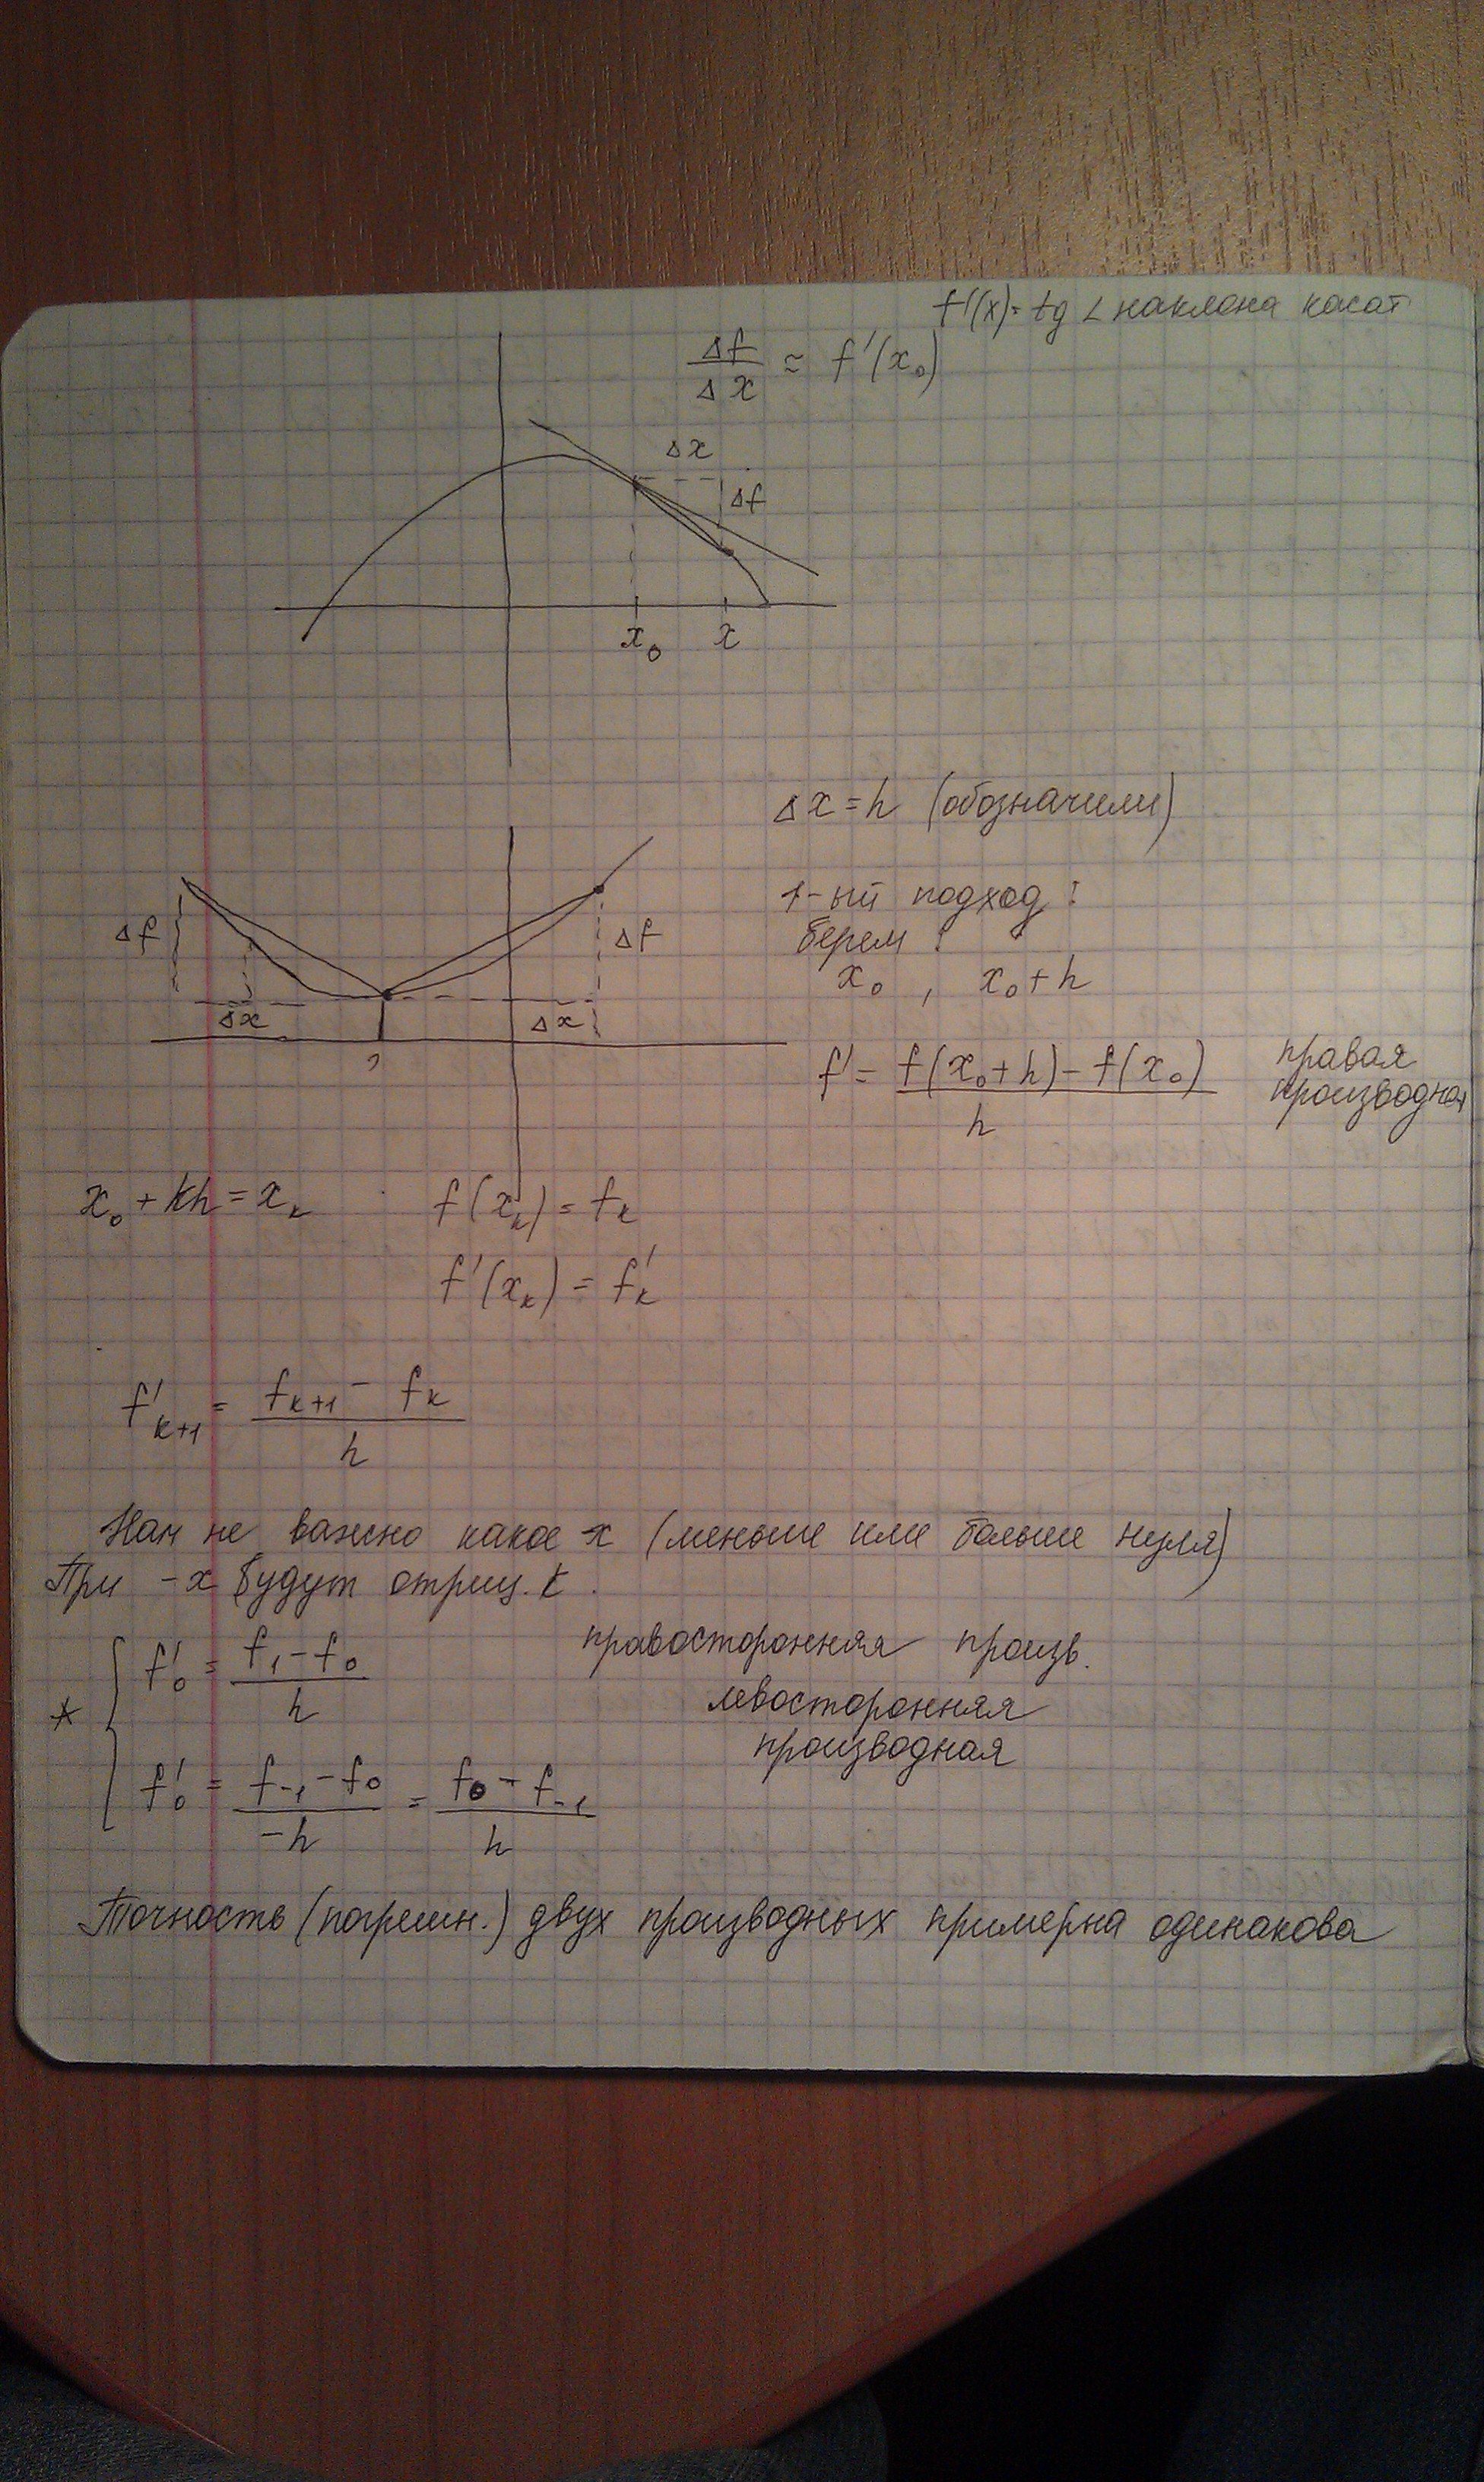 f'(x) = tg ∠ наклона касат
Δf/Δx ≃ f'(x₀)
Δx
Δf
x₀ x
Δx = h (обозначили)
1-ый подход:
берем:
x₀ , x₀+h
Δf Δf
Δx Δx
f' = (f(x₀+h) - f(x₀))/h правая производная
x₀ + kh = xₖ f(xₖ) = fₖ
f'(xₖ) = f'ₖ
f'ₖ₊₁ = (fₖ₊₁ - fₖ)/h
Нам не важно какое x (меньше или больше нуля)
При -x будут отриц. k.
* { f'₀ = (f₁ - f₀)/h правосторонняя произв.
левосторонняя
производная
f'₀ = (f₋₁ - f₀)/-h = (f₀ - f₋₁)/h
Точность (погрешн.) двух производных примерна одинакова